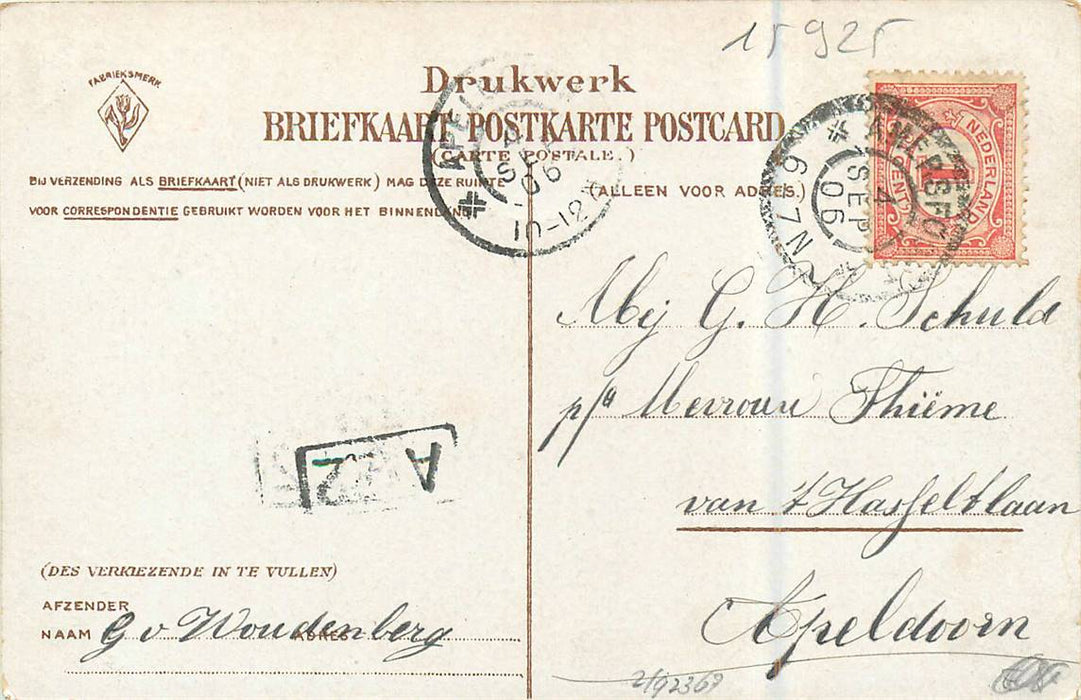 15925
FABRIEKSMERK
Drukwerk
BRIEFKAART POSTKARTE POSTCARD
(CARTE POSTALE.)
BIJ VERZENDING ALS BRIEFKAART (NIET ALS DRUKWERK) MAG DEZE RUIMTE
VOOR CORRESPONDENTIE GEBRUIKT WORDEN VOOR HET BINNENLAND
(ALLEEN VOOR ADRES.)
APEL
4 SEP 06
10-12
AMERSFO
4 SEP 06
6-7N
NEDERLAND
1
CENT
Mej G. H. Schuld
p/a Mevrouw Thiëme
van 't Hasseltlaan
Apeldoorn
A
2
(DES VERKIEZENDE IN TE VULLEN)
AFZENDER
NAAM G v Woudenberg ADRES